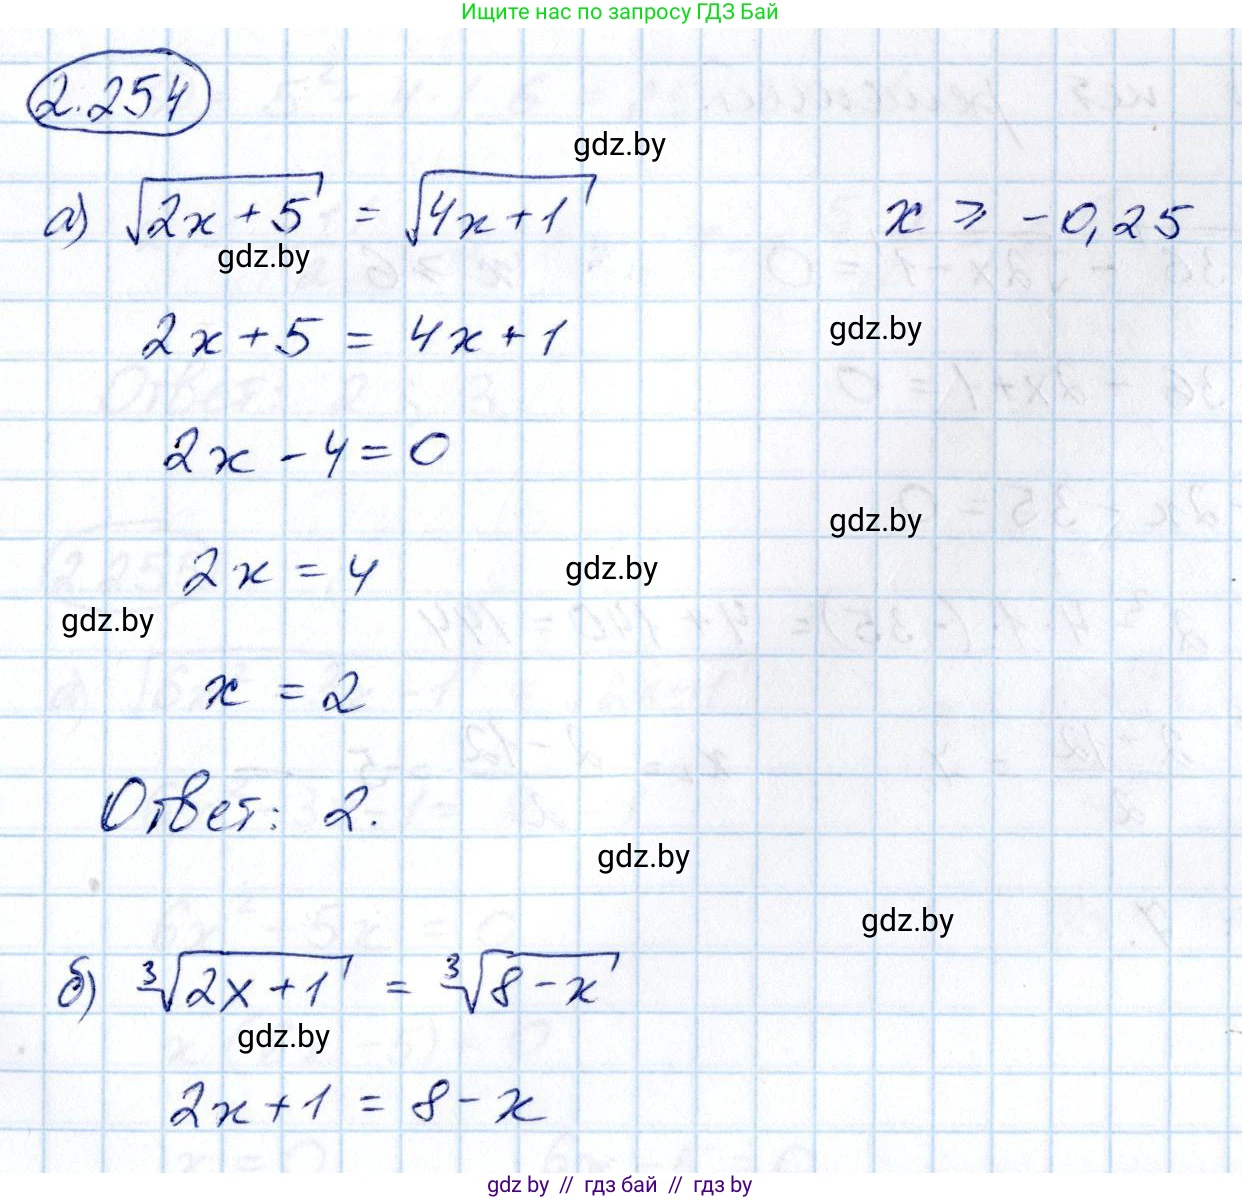 Ищите нас по запросу ГДЗ Бай
2.254
gdz.by
а) √2x + 5 = √4x + 1    x ⩾ -0,25
gdz.by
2x + 5 = 4x + 1
gdz.by
2x - 4 = 0
gdz.by
2x = 4
gdz.by
gdz.by
x = 2
Ответ: 2.
gdz.by
gdz.by
б) ³√2x + 1 = ³√8 - x
gdz.by
2x + 1 = 8 - x
gdz.by // гдз бай // гдз by